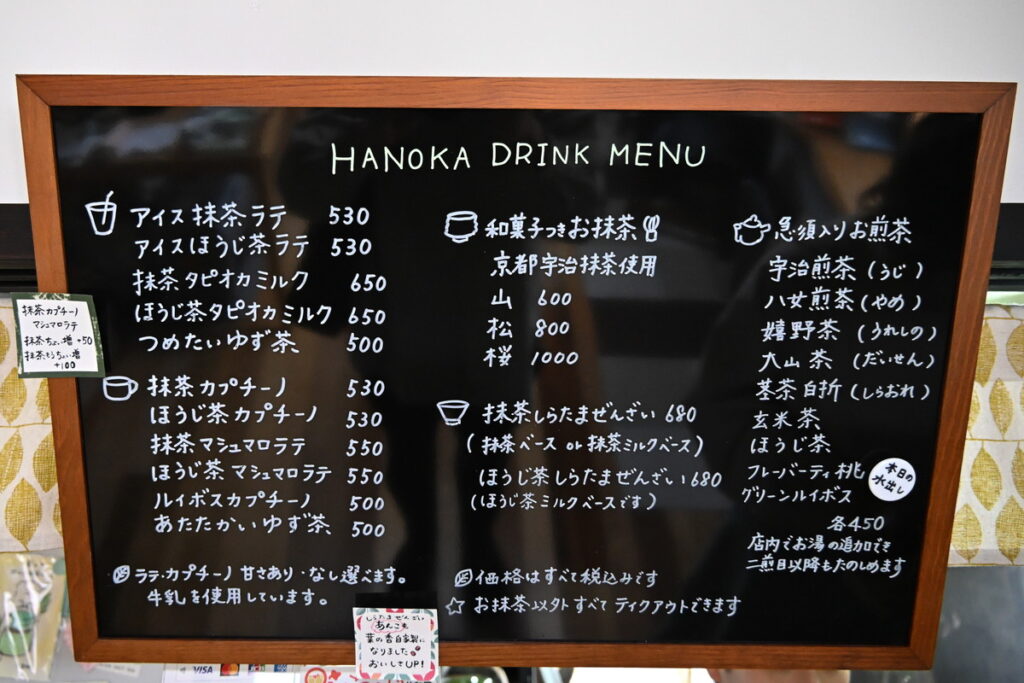 HANOKA DRINK MENU
アイス抹茶ラテ 530
アイスほうじ茶ラテ 530
抹茶タピオカミルク 650
ほうじ茶タピオカミルク 650
つめたいゆず茶 500
抹茶カプチーノ 530
ほうじ茶カプチーノ 530
抹茶マシュマロラテ 550
ほうじ茶マシュマロラテ 550
ルイボスカプチーノ 500
あたたかいゆず茶 500
ラテ・カプチーノ 甘さあり・なし選べます。
牛乳を使用しています。
抹茶カプチーノ
マシュマロラテ
抹茶ちょい増 +50
抹茶もうちょい増
+100
和菓子つきお抹茶
京都宇治抹茶使用
山 600
松 800
桜 1000
抹茶しらたまぜんざい 680
(抹茶ベース or 抹茶ミルクベース)
ほうじ茶しらたまぜんざい 680
(ほうじ茶ミルクベースです)
価格はすべて税込みです
☆ お抹茶以外すべてテイクアウトできます
急須入りお煎茶
宇治煎茶(うじ)
八女煎茶(やめ)
嬉野茶(うれしの)
大山茶(だいせん)
茎茶白折(しらおれ)
玄米茶
ほうじ茶
フレーバーティ桃
グリーンルイボス
本日の
水出し
各450
店内でお湯の追加でき
二煎目以降もたのしめます
しらたまぜんざい
あんこも
葉の香自家製に
なりました
おいしさUP!
VISA